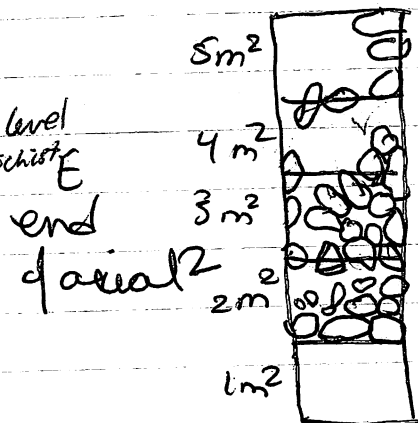 5m²
level
schist E
4 m²
end
3 m²
2m²
1m²